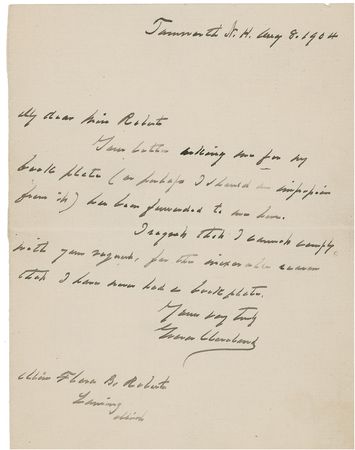 Tamworth N.H. Aug 8. 1904
My dear Miss Roberts
Your letter asking me for my
book plate (or perhaps I should say impression
from it) has been forwarded to me here.
I regret that I cannot comply
with your request, for the inexorable reason
that I have never had a book plate.
Yours very truly
Grover Cleveland
Miss Flora B. Roberts
Lansing
Mich